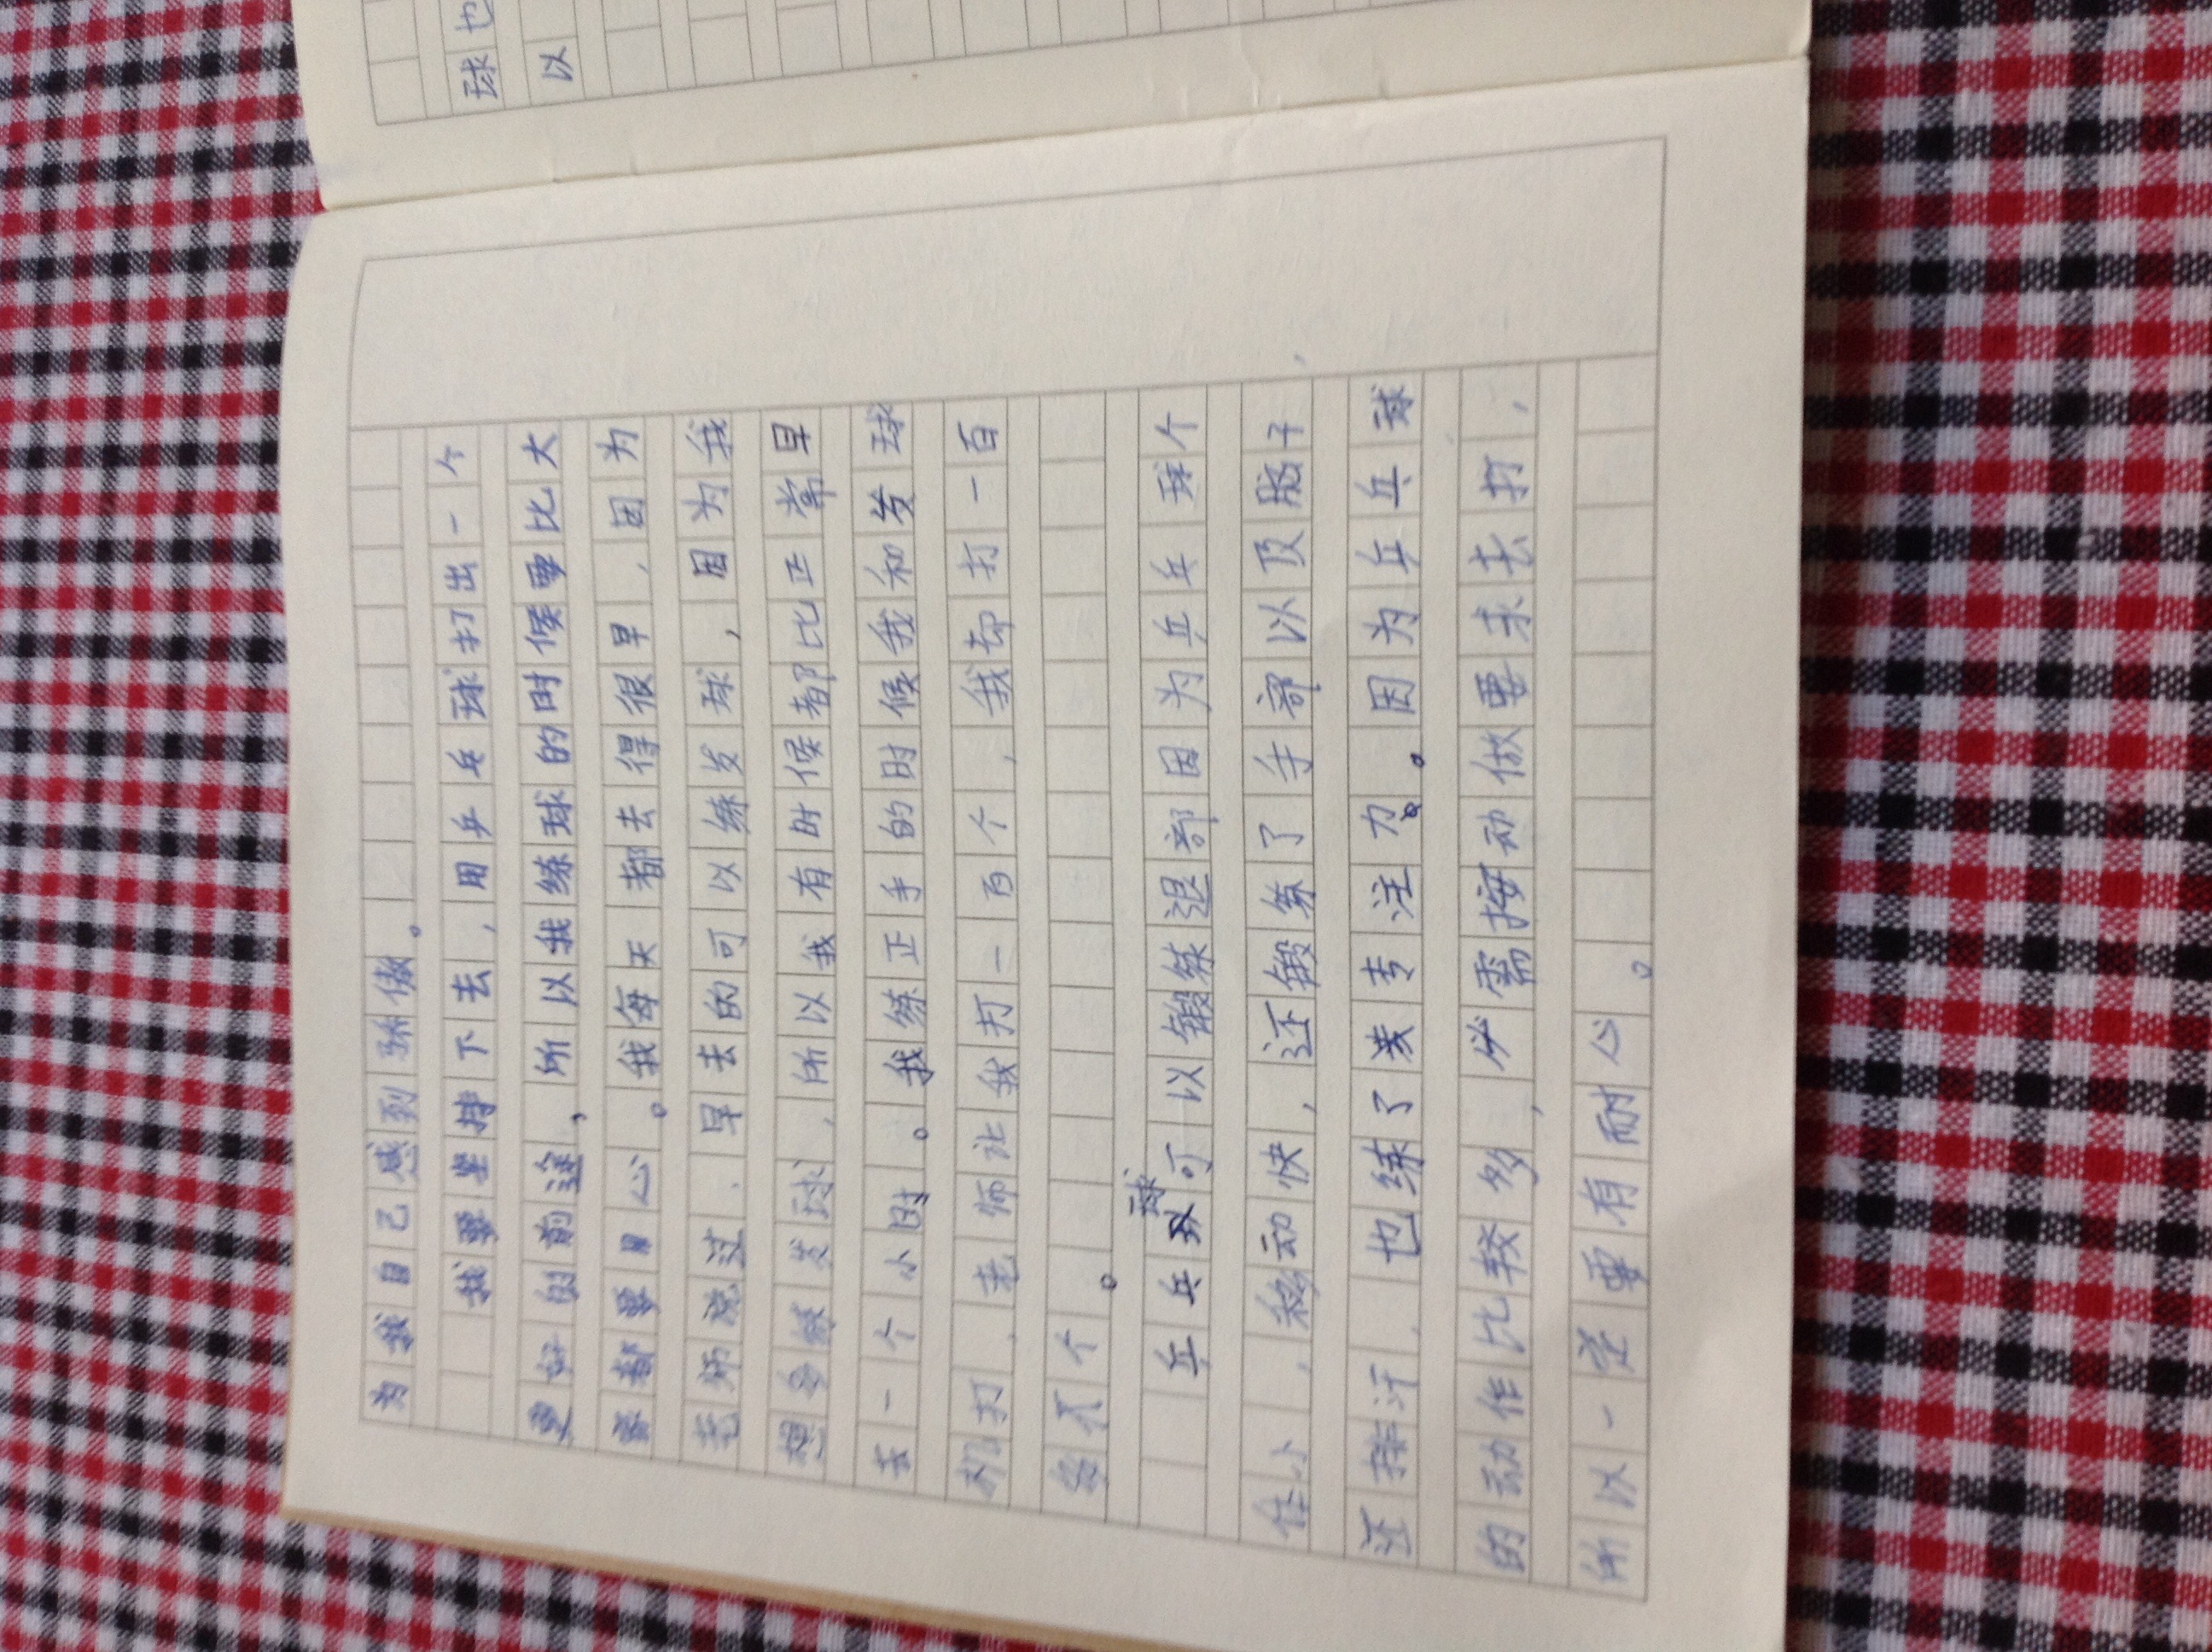 为我自己感到骄傲。
我要坚持下去，用乒乓球打出一个
更好的前途，所以我练球的时候要比大
家都要用心。我每天都去得很早，因为
老师说过，早去的可以练发球，因为我
想多练发球，所以我有时候都比正常早
去一个小时。我练正手的时候我和发球
机打，老师让我打一百个，我却打一百
多个。
乒乓球可以锻练退部因为乒乓球个
体小，移动快，还锻练了手部以及脑子
还排汗，也练了类专注力。因为乒乓球
的动作比较多，必需按动做要求去打，
所以一定要有耐心。
球也
以